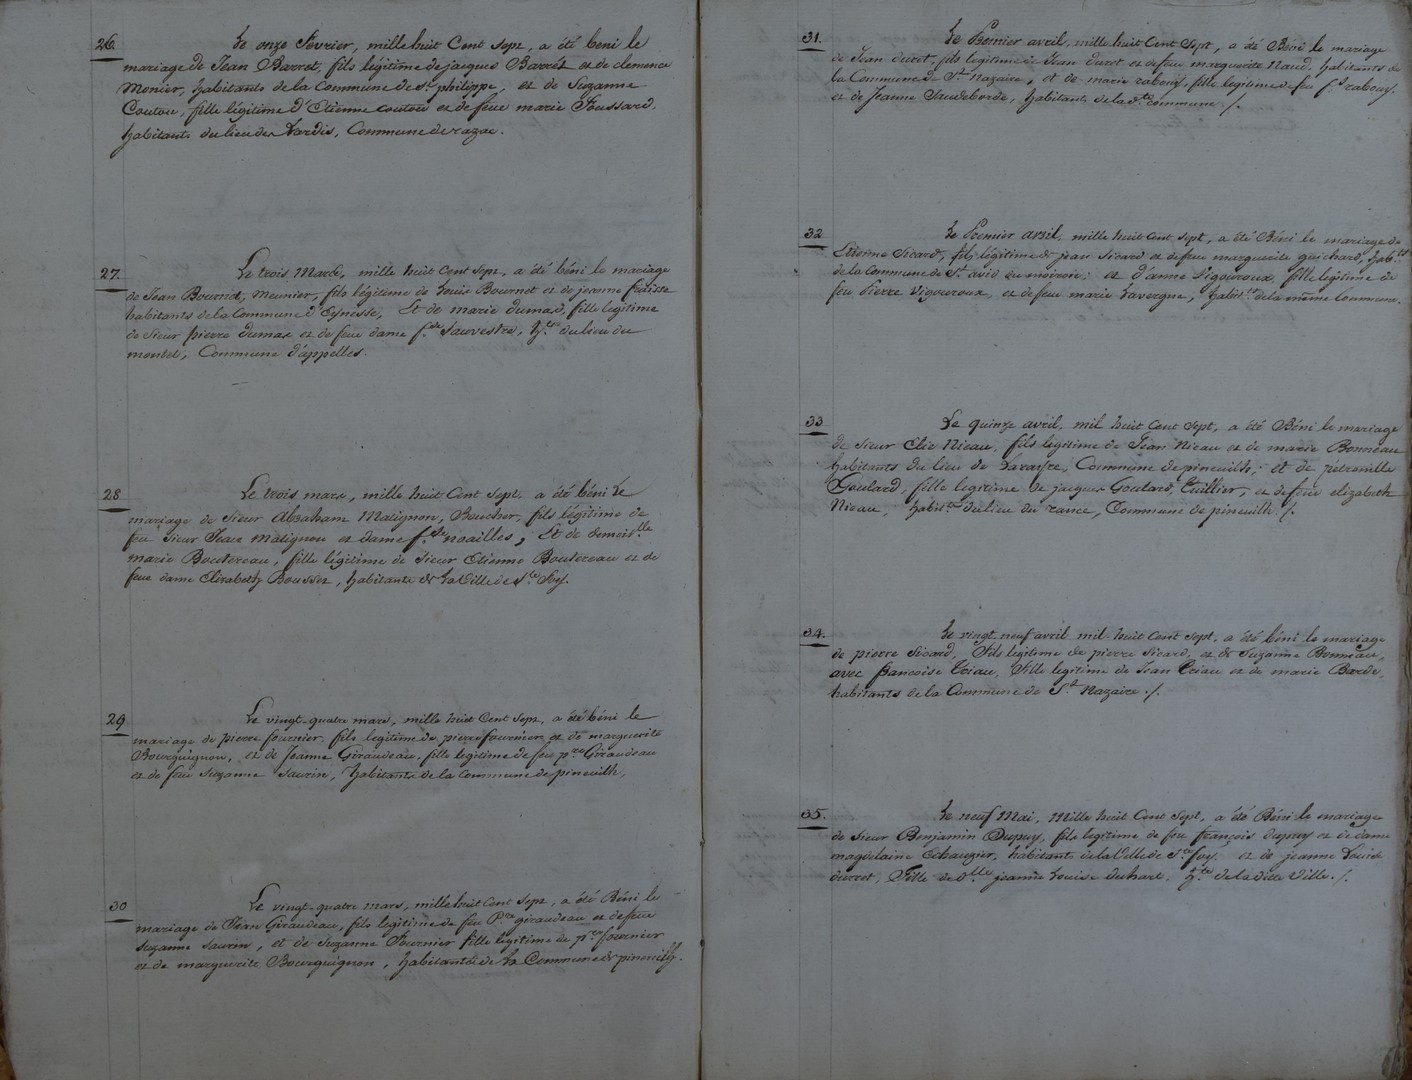 26. Le onze Février, mille huit Cent Sept, a été béni le
mariage de Jean Barret, fils légitime de jacques Barret et de clemence
Monier, habitants de la Commune de St philippe, et de Suzanne
Coutou, fille légitime d'Etienne coutou et de feue marie Foussard,
habitants du lieu des Lardis, Commune de razac.
27. Le trois Mars, mille huit Cent Sept, a été béni le mariage
de Jean Bournet, Meunier, fils légitime de Louis Bournet et de jeanne fraisse
habitants de la Commune d'Eynesse, Et de marie dumas, fille legitime
de Sieur pierre dumas et de feue dame f.se Sauvestre, h.ts du lieu du
montet, Commune d'appelles.
28 Le trois mars, mille huit Cent Sept, a été béni le
mariage de Sieur Abraham Matignon, Boucher, fils légitime de
feu Sieur Isaac Matignon et dame f.se noailles, Et de Demois.lle
marie Boutereau, fille légitime de Sieur Etienne Boutereau et de
feue dame Elizabeth Bousset, habitants de la Ville de S.te Foy.
29 Le vingt-quatre mars, mille huit Cent Sept, a été béni le
mariage de pierre fournier fils legitime de pierre fournier et de marguerite
Bourguignon, et de Jeanne Giraudeau, fille legitime de feu p.re Giraudeau
et de feue Suzanne Saurin, habitants de la Commune de pineuilh.
30 Le vingt-quatre mars, mille huit Cent Sept, a été Béni le
mariage de Jean Giraudeau, fils legitime de feu P.re giraudeau et de feue
Suzanne Saurin, et de Suzanne Fournier fille legitime de p.re fournier
et de marguerite Bourguignon, habitants de la Commune de pineuilh.
31. Le Premier avril, mille huit Cent Sept, a été Béni le mariage
de Jean duret, fils legitime de Jean duret et de feue marguerite Naud, habitants de
la Commune de St Nazaire, et de marie rabouy, fille legitime de feu f.s rabouy,
et de Jeanne Saudeborde, habitants de la d.te commune ./.
32 Le Premier avril, mille huit Cent Sept, a été Béni le mariage de
Etienne Sicard, fils légitime de jean Sicard et de feue marguerite guichard, hab.ts
de la Commune de St avid du moiron; et d'anne Vigouroux, fille legitime de
feu Pierre Vigouroux, et de feue marie Lavergne, habit.ts de la même Commune.
33 Le quinze avril, mil huit Cent Sept, a été Béni le mariage
de Sieur Elie Nicau, fils legitime de Jean Nicau et de marie Bonneau
habitants du lieu de, Commune de pineuilh; et de pétronille
Goulard, fille legitime de jacques Goulard, tuillier, et de feue elizabeth
Nicau, habit.ts du lieu du rance, Commune de pineuilh ./.
34. Le vingt neuf avril mil-huit Cent Sept, a été béni le mariage
de pierre Sicard, Fils legitime de pierre Sicard, et de Suzanne Bonneau,
avec francoise Criau, Fille legitime de Jean Criau et de marie Barde,
habitants de la Commune de St. Nazaire ./.
35. Le neuf Mai, Mille huit Cent Sept, a été Béni le mariage
de Sieur Benjamin Dupuy, fils legitime de feu françois dupuy et de dame
magdelaine Echauzier, habitants de la Ville de S.te foy. et de jeanne Louise
durret, Fille de d.lle jeanne Louise duhart, h.te de la dite Ville ./.